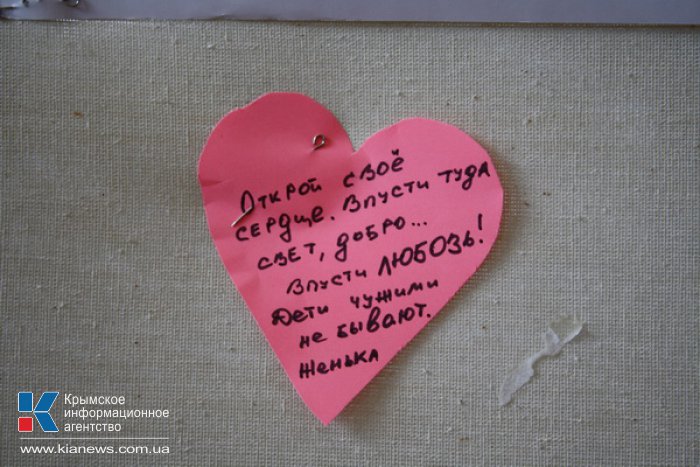 Открой своё
сердце. Впусти туда
свет, добро...
Впусти ЛЮБОЗЬ!
Дети чужими
не бывают.
Женька
Крымское
информационное
агентство
www.kianews.com.ua